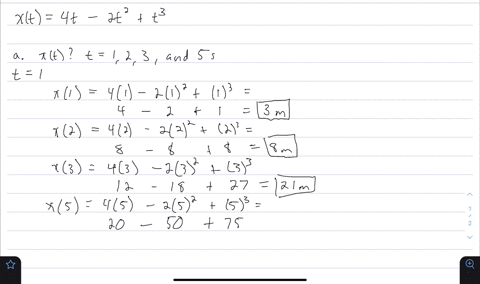 x(t) = 4t - 2t² + t³
a. x(t)? t = 1, 2, 3, and 5s
t = 1
x(1) = 4(1) - 2(1)² + (1)³ =
4 - 2 + 1 = 3m
x(2) = 4(2) - 2(2)² + (2)³ =
8 - 8 + 8 = 8m
x(3) = 4(3) - 2(3)² + (3)³
12 - 18 + 27 = 21m
x(5) = 4(5) - 2(5)² + (5)³ =
20 - 50 + 75